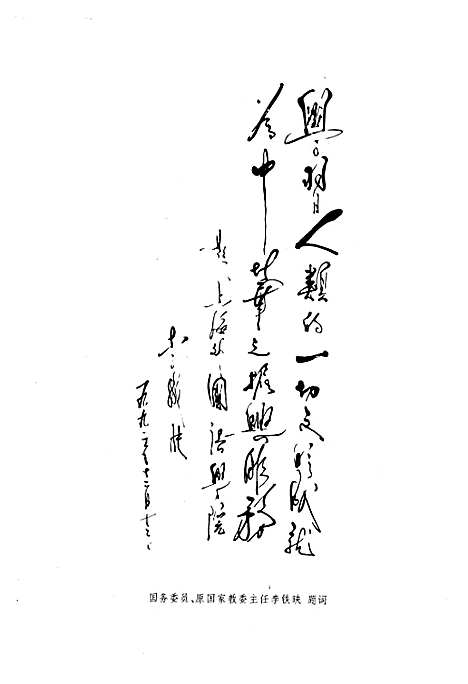 學習人類的一切文明成就
為中華之振興服務
題上海外國语學院
李鐵映
一九九三年十二月十三日
国务委员、原国家教委主任李铁映 题词